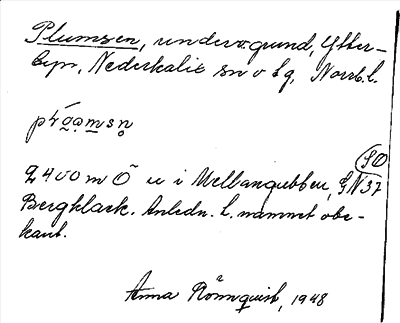 Plumsen, undervgrund, Ytter-
byn, Nederkalix sn o tg, Norrb. l.
SO
2400 m Ö u i Mellangubben, GN 37
Bergklack. Anledn. t. namnet obe-
kant.
Anna Rönnquist, 1948